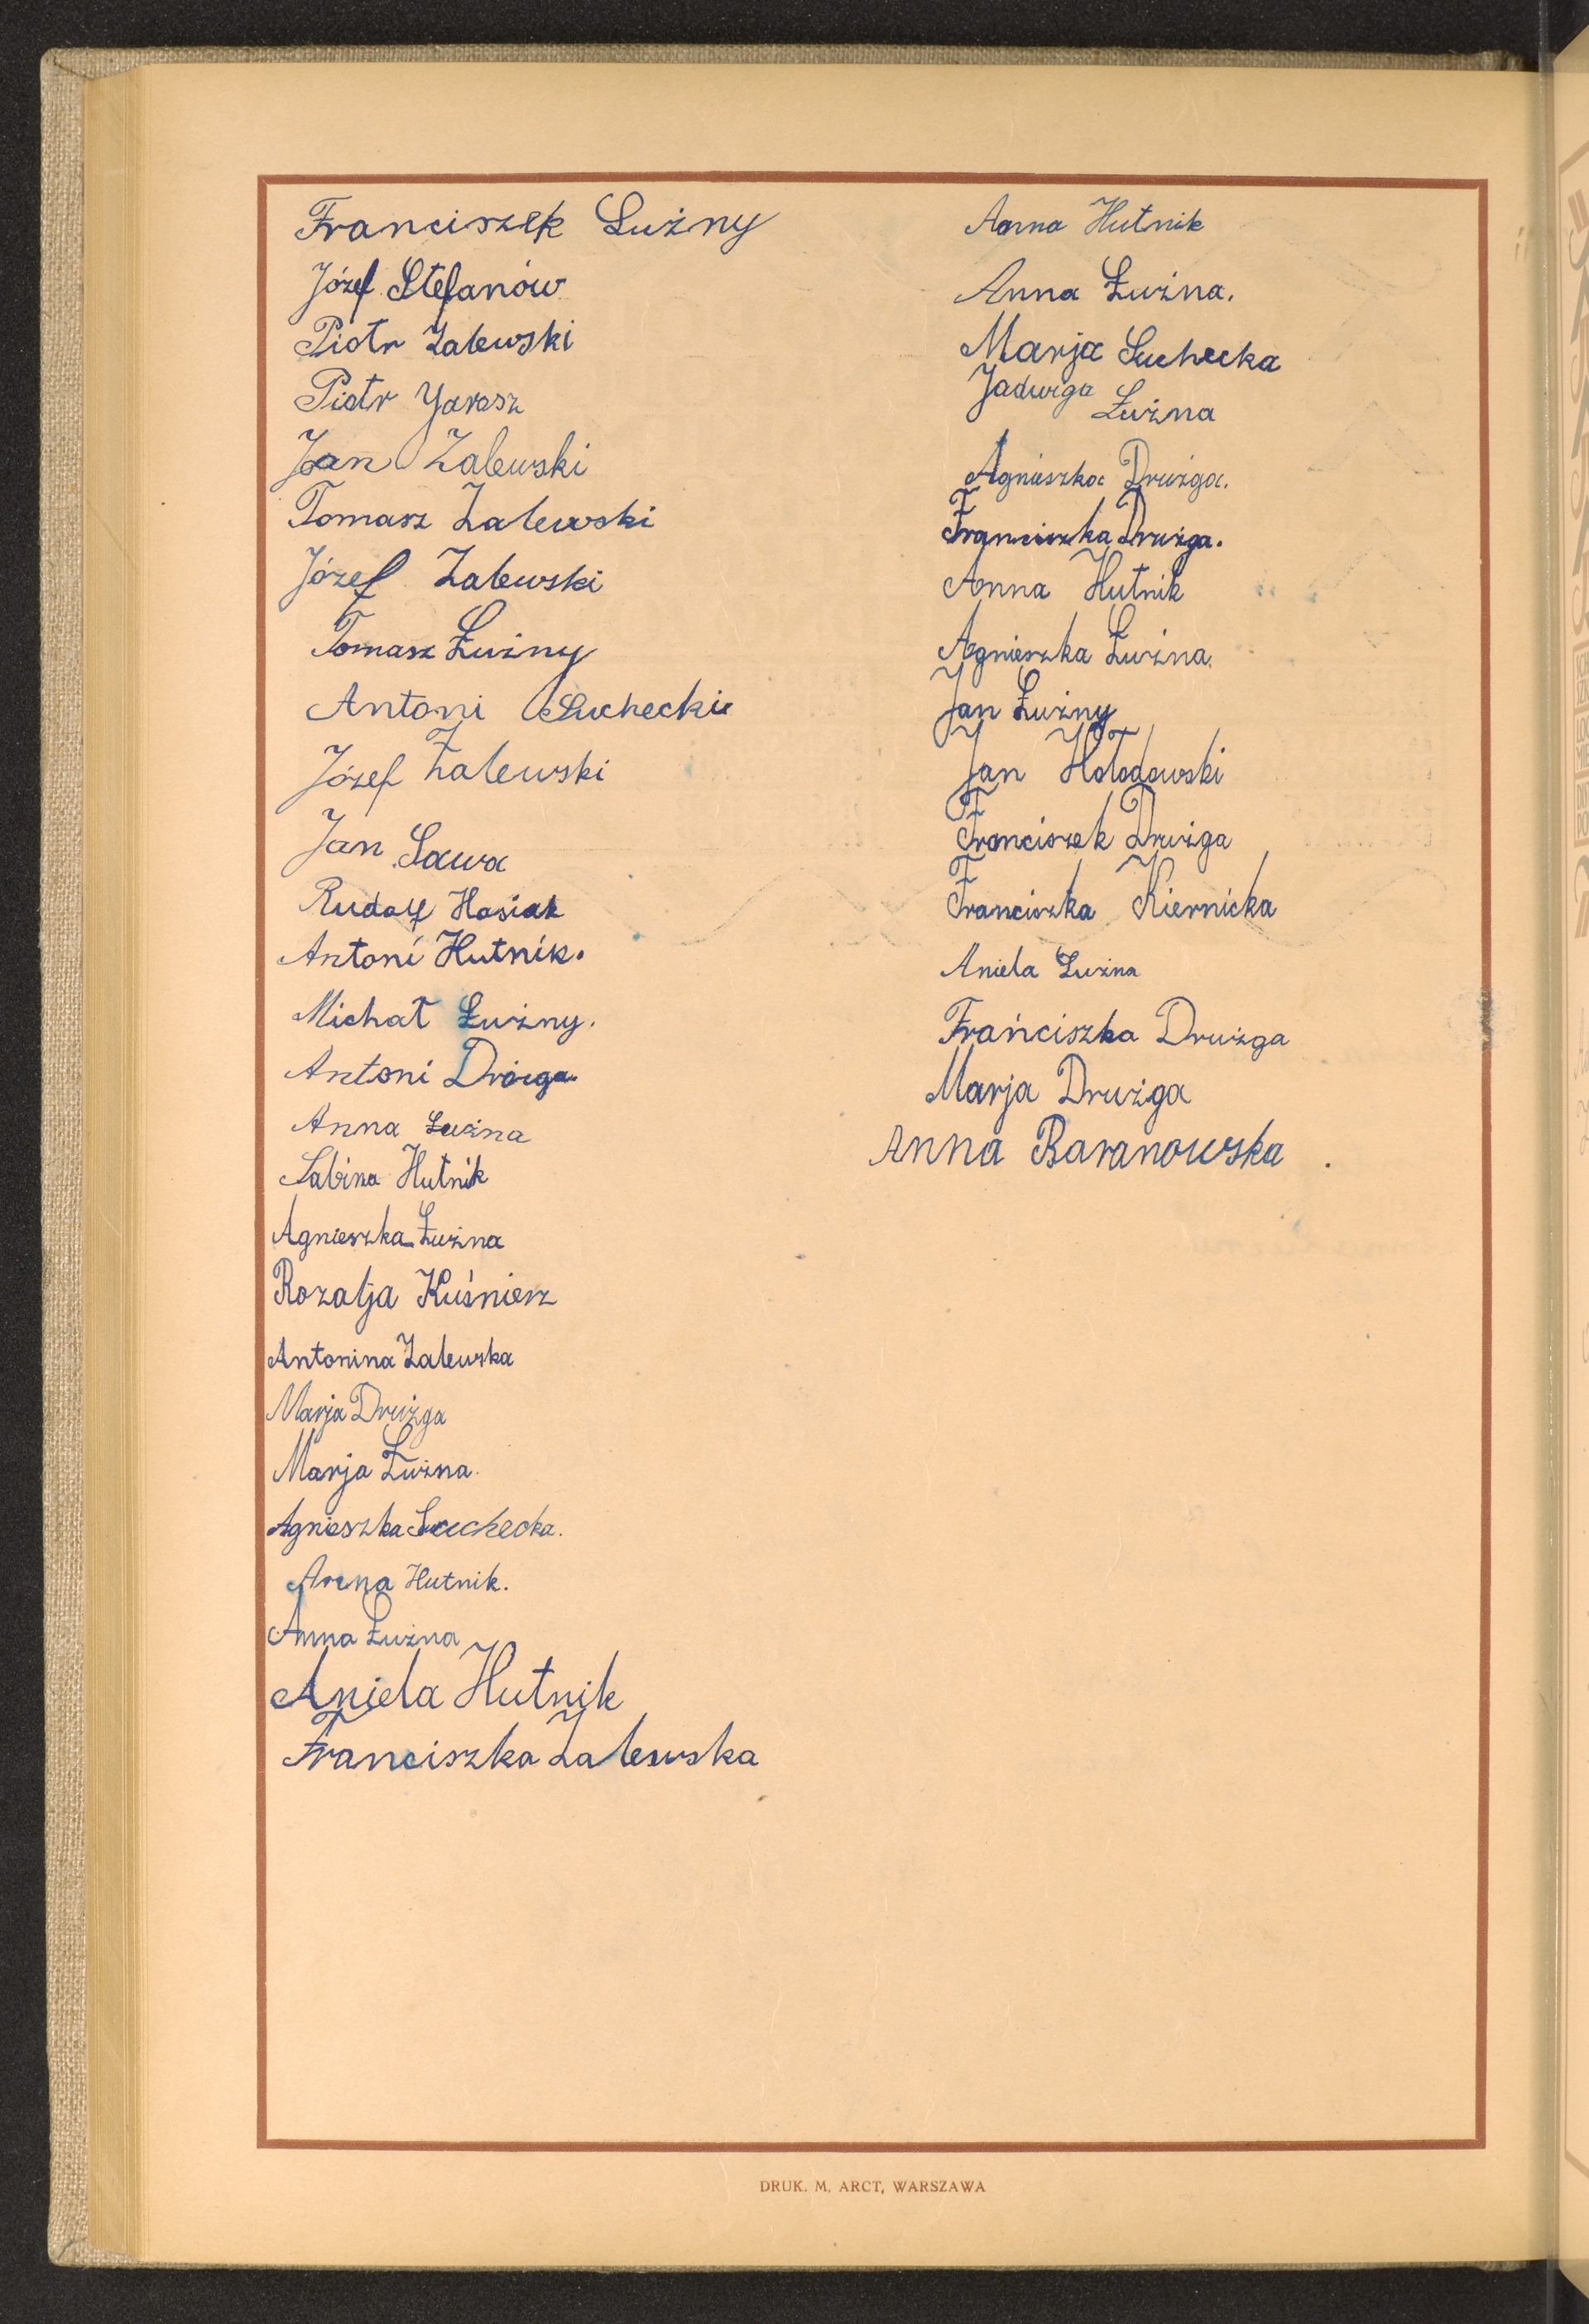 Franciszek Łużny
Józef Stefanów
Piotr Zalewski
Piotr Yarosz
Jan Zalewski
Tomasz Zalewski
Józef Zalewski
Tomasz Łużny
Antoni Suchecki
Józef Zalewski
Jan Sawa
Rudolf Hasiak
Antoni Hutnik.
Michał Łużny.
Antoni Dróżga.
Anna Łużna
Sabina Hutnik
Agnieszka Łużna
Rozalja Kuśnierz
Antonina Zalewska
Marja Drużga
Marja Łużna.
Agnieszka Suchecka.
Anna Hutnik.
Anna Łużna
Aniela Hutnik
Franciszka Zalewska
Anna Hutnik
Anna Łużna.
Marja Suchecka
Jadwiga Łużna
Agnieszka Drużga.
Franciszka Drużga.
Anna Hutnik
Agnieszka Łużna.
Jan Łużny
Jan Hołodowski
Franciszek Drużga
Franciszka Kiernicka
Aniela Łużna
Frańciszka Drużga
Marja Drużga
Anna Baranowska.
DRUK. M. ARCT, WARSZAWA